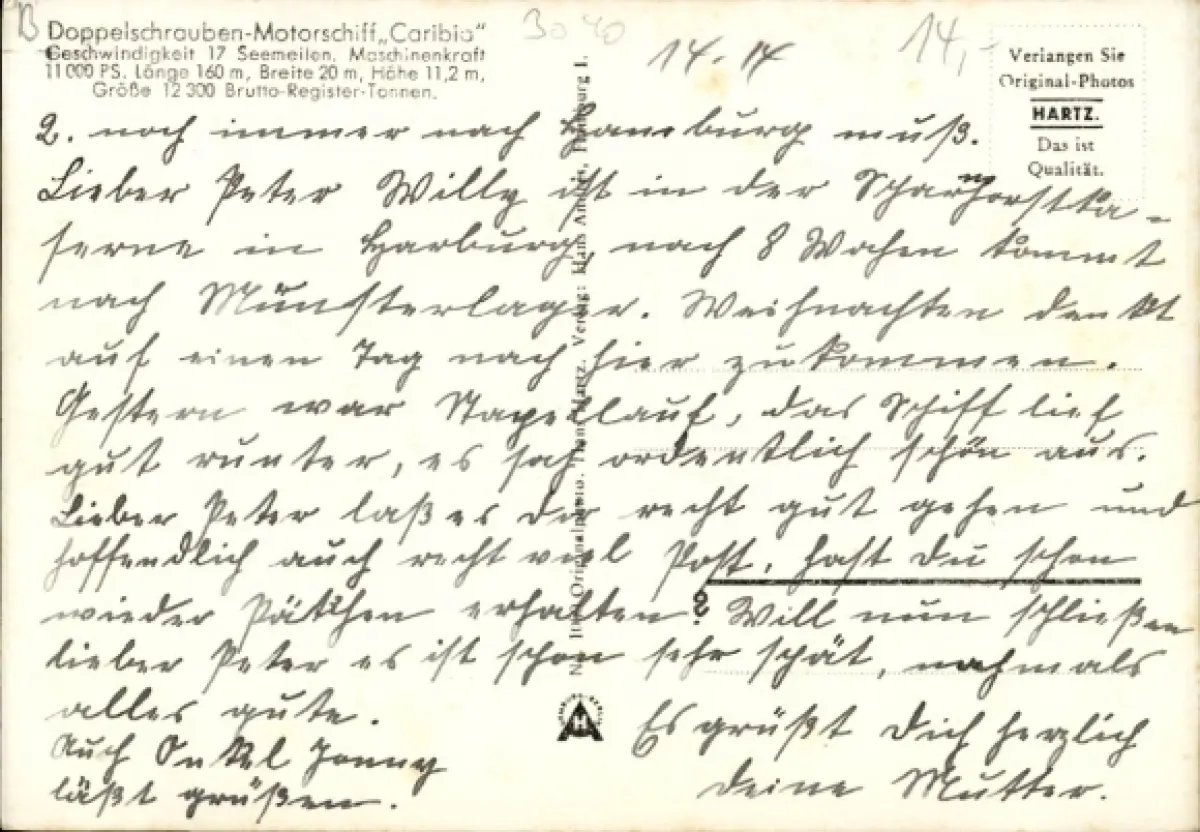 B
Doppelschrauben-Motorschiff „Caribia"
Geschwindigkeit 17 Seemeilen, Maschinenkraft
11000 PS. Länge 160 m, Breite 20 m, Höhe 11,2 m,
Größe 12300 Brutto-Register-Tonnen.
30 40
14.-
Verlangen Sie
Original-Photos
HARTZ.
Das ist
Qualität.
2. noch immer nach Hamburg muß.
Lieber Peter Willy ist in der Scharnhorstka-
serne in Harburg, nach 8 Wochen kommt
nach Münsterlager. Weihnachten denkt
auf einen Tag nach hier zu kommen.
Gestern war Stapellauf, das Schiff lief
gut runter, es sah ordentlich schön aus.
Lieber Peter laß es Dir recht gut gehen und
hoffendlich auch recht viel Post, hast Du schon
wieder Pätchen erhalten? Will nun schließen
lieber Peter es ist schon sehr spät, nochmals
alles gute.
Auch Onkel Jonny
läßt grüßen.
Es grüßt Dich herzlich
deine Mutter.
Originalphoto. Hans Hartz. Verlag: Hans Andres, Hamburg 1.
H